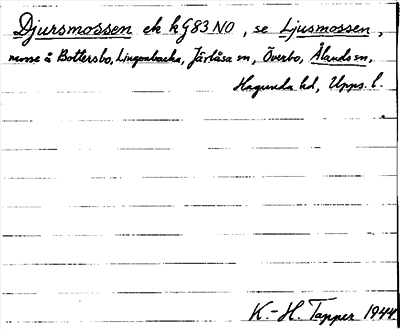 Djursmossen ek k G83 NO, se Ljusmossen,
mosse å Bottersbo, Lingonbacka, Järlåsa sn, Överbo, Ålands sn,
Hagunda hd, Upps. l.
K.-H. Tapper 1944